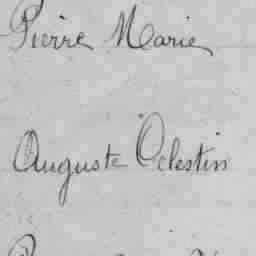 Pierre Marie
Auguste Célestin